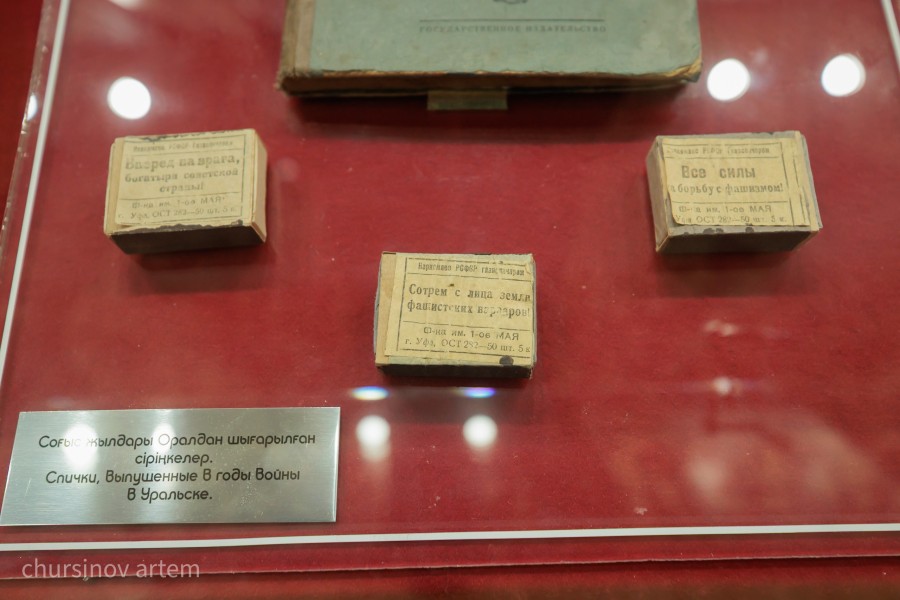 ГОСУДАРСТВЕННОЕ ИЗДАТЕЛЬСТВО
РСФСР
Вперед на врага,
богатыри советской
страны!
Ф-ка им. 1-ое МАЯ
г. Уфа, ОСТ 282—50 шт. 5 к.
РСФСР
Все силы
а борьбу с фашизмом!
Ф-ка им. 1-ое МАЯ
Уфа, ОСТ 282—50 шт. 5 к.
РСФСР
Сотрем с лица земли
фашистских варваров!
Ф-ка им. 1-ое МАЯ
г. Уфа, ОСТ 282—50 шт. 5 к
Соғыс жылдары Оралдан шығарылған
сіріңкелер.
Спички, выпушенные в годы войны
в Уральске.
chursinov artem